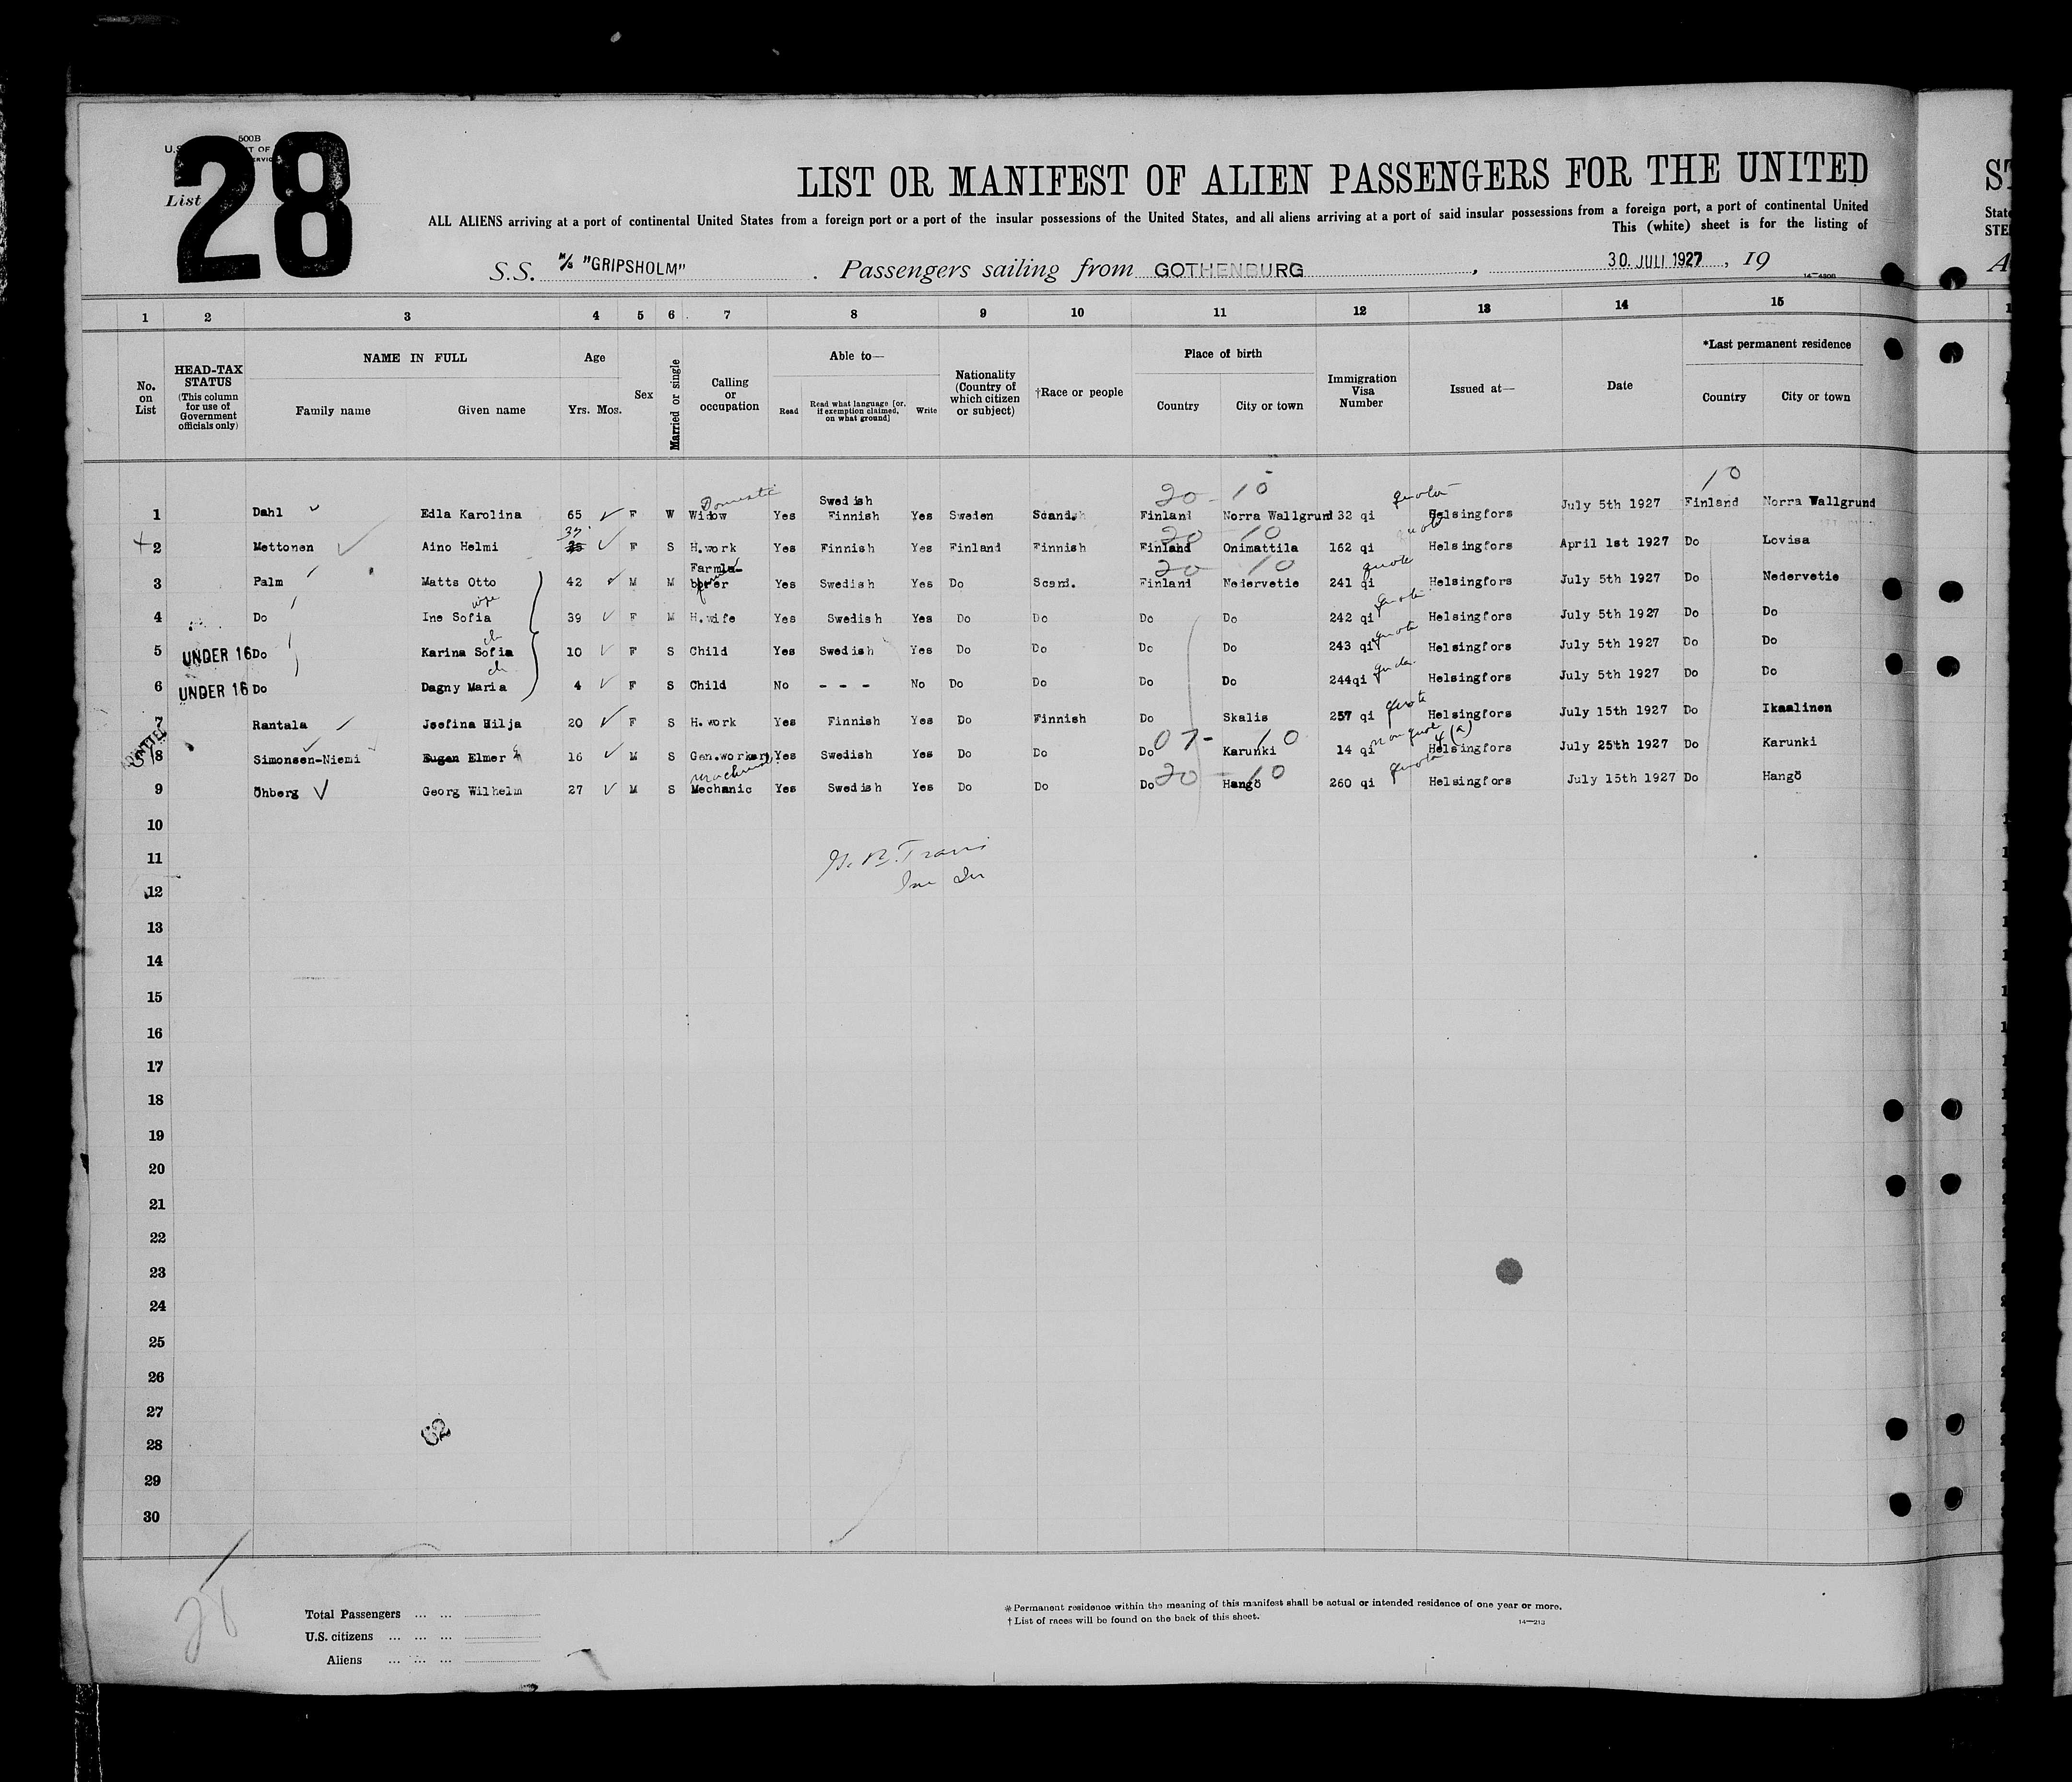 500B
28
List
LIST OR MANIFEST OF ALIEN PASSENGERS FOR THE UNITED
ALL ALIENS arriving at a port of continental United States from a foreign port or a port of the insular possessions of the United States, and all aliens arriving at a port of said insular possessions from a foreign port, a port of continental United
This (white) sheet is for the listing of
S.S. M/S "GRIPSHOLM" . Passengers sailing from GOTHENBURG , 30 JULI 1927 , 19
1 2 3 4 5 6 7 8 9 10 11 12 13 14 15
No. on List
HEAD-TAX STATUS (This column for use of Government officials only)
NAME IN FULL
Family name Given name
Age
Yrs. Mos.
Sex
Married or single
Calling or occupation
Able to—
Read Read what language [or, if exemption claimed, on what ground] Write
Nationality (Country of which citizen or subject)
†Race or people
Place of birth
Country City or town
Immigration Visa Number
Issued at—
Date
*Last permanent residence
Country City or town
20 - 10 10
Domestic quota
1 Dahl Edla Karolina 65 F W Widow Yes Swedish Finnish Yes Sweden Scand. Finland Norra Wallgrund 132 qi Helsingfors July 5th 1927 Finland Norra Wallgrund
37 20 10 quota
2 Mettonen Aino Helmi 35 F S H.work Yes Finnish Yes Finland Finnish Finland Onimattila 162 qi Helsingfors April 1st 1927 Do Lovisa
20 10 quota
3 Palm Matts Otto 42 M M Farmla-borer Yes Swedish Yes Do Scand. Finland Nedervetie 241 qi Helsingfors July 5th 1927 Do Nedervetie
wife quota
4 Do Ine Sofia 39 F M H.wife Yes Swedish Yes Do Do Do Do 242 qi Helsingfors July 5th 1927 Do Do
ch quota
5 UNDER 16 Do Karina Sofia 10 F S Child Yes Swedish Yes Do Do Do Do 243 qi Helsingfors July 5th 1927 Do Do
ch quota
6 UNDER 16 Do Dagny Maria 4 F S Child No - - - No Do Do Do Do 244qi Helsingfors July 5th 1927 Do Do
quota
7 Rantala Josefina Hilja 20 F S H.work Yes Finnish Yes Do Finnish Do Skalis 257 qi Helsingfors July 15th 1927 Do Ikaalinen
07- 10 non quota 4 (a)
8 Simonsen-Niemi Eugen Elmer 16 M S Gen.worker Yes Swedish Yes Do Do Do Karunki 14 qi Helsingfors July 25th 1927 Do Karunki
20 - 10 quota
9 Öhberg Georg Wilhelm 27 M S Mechanic Yes Swedish Yes Do Do Do Hangö 260 qi Helsingfors July 15th 1927 Do Hangö
10
11
12
13
14
15
16
17
18
19
20
21
22
23
24
25
26
27
28
29
30
28
Total Passengers ... ...
U.S. citizens ... ... ...
Aliens ... ... ...
* Permanent residence within the meaning of this manifest shall be actual or intended residence of one year or more.
† List of races will be found on the back of this sheet.
14—213